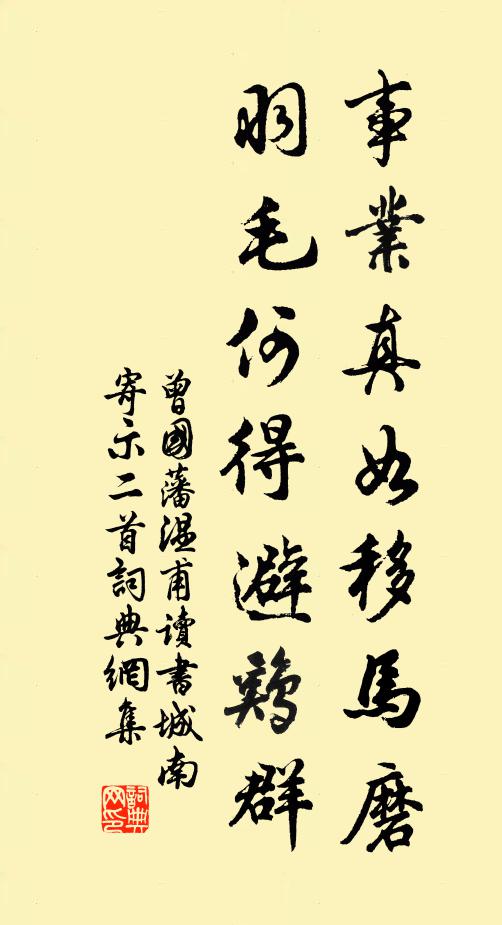 事業真如移馬磨
羽毛何得避鷄群
曾國藩溫甫讀書城南
寄示二首詞典網集
詞典
网印